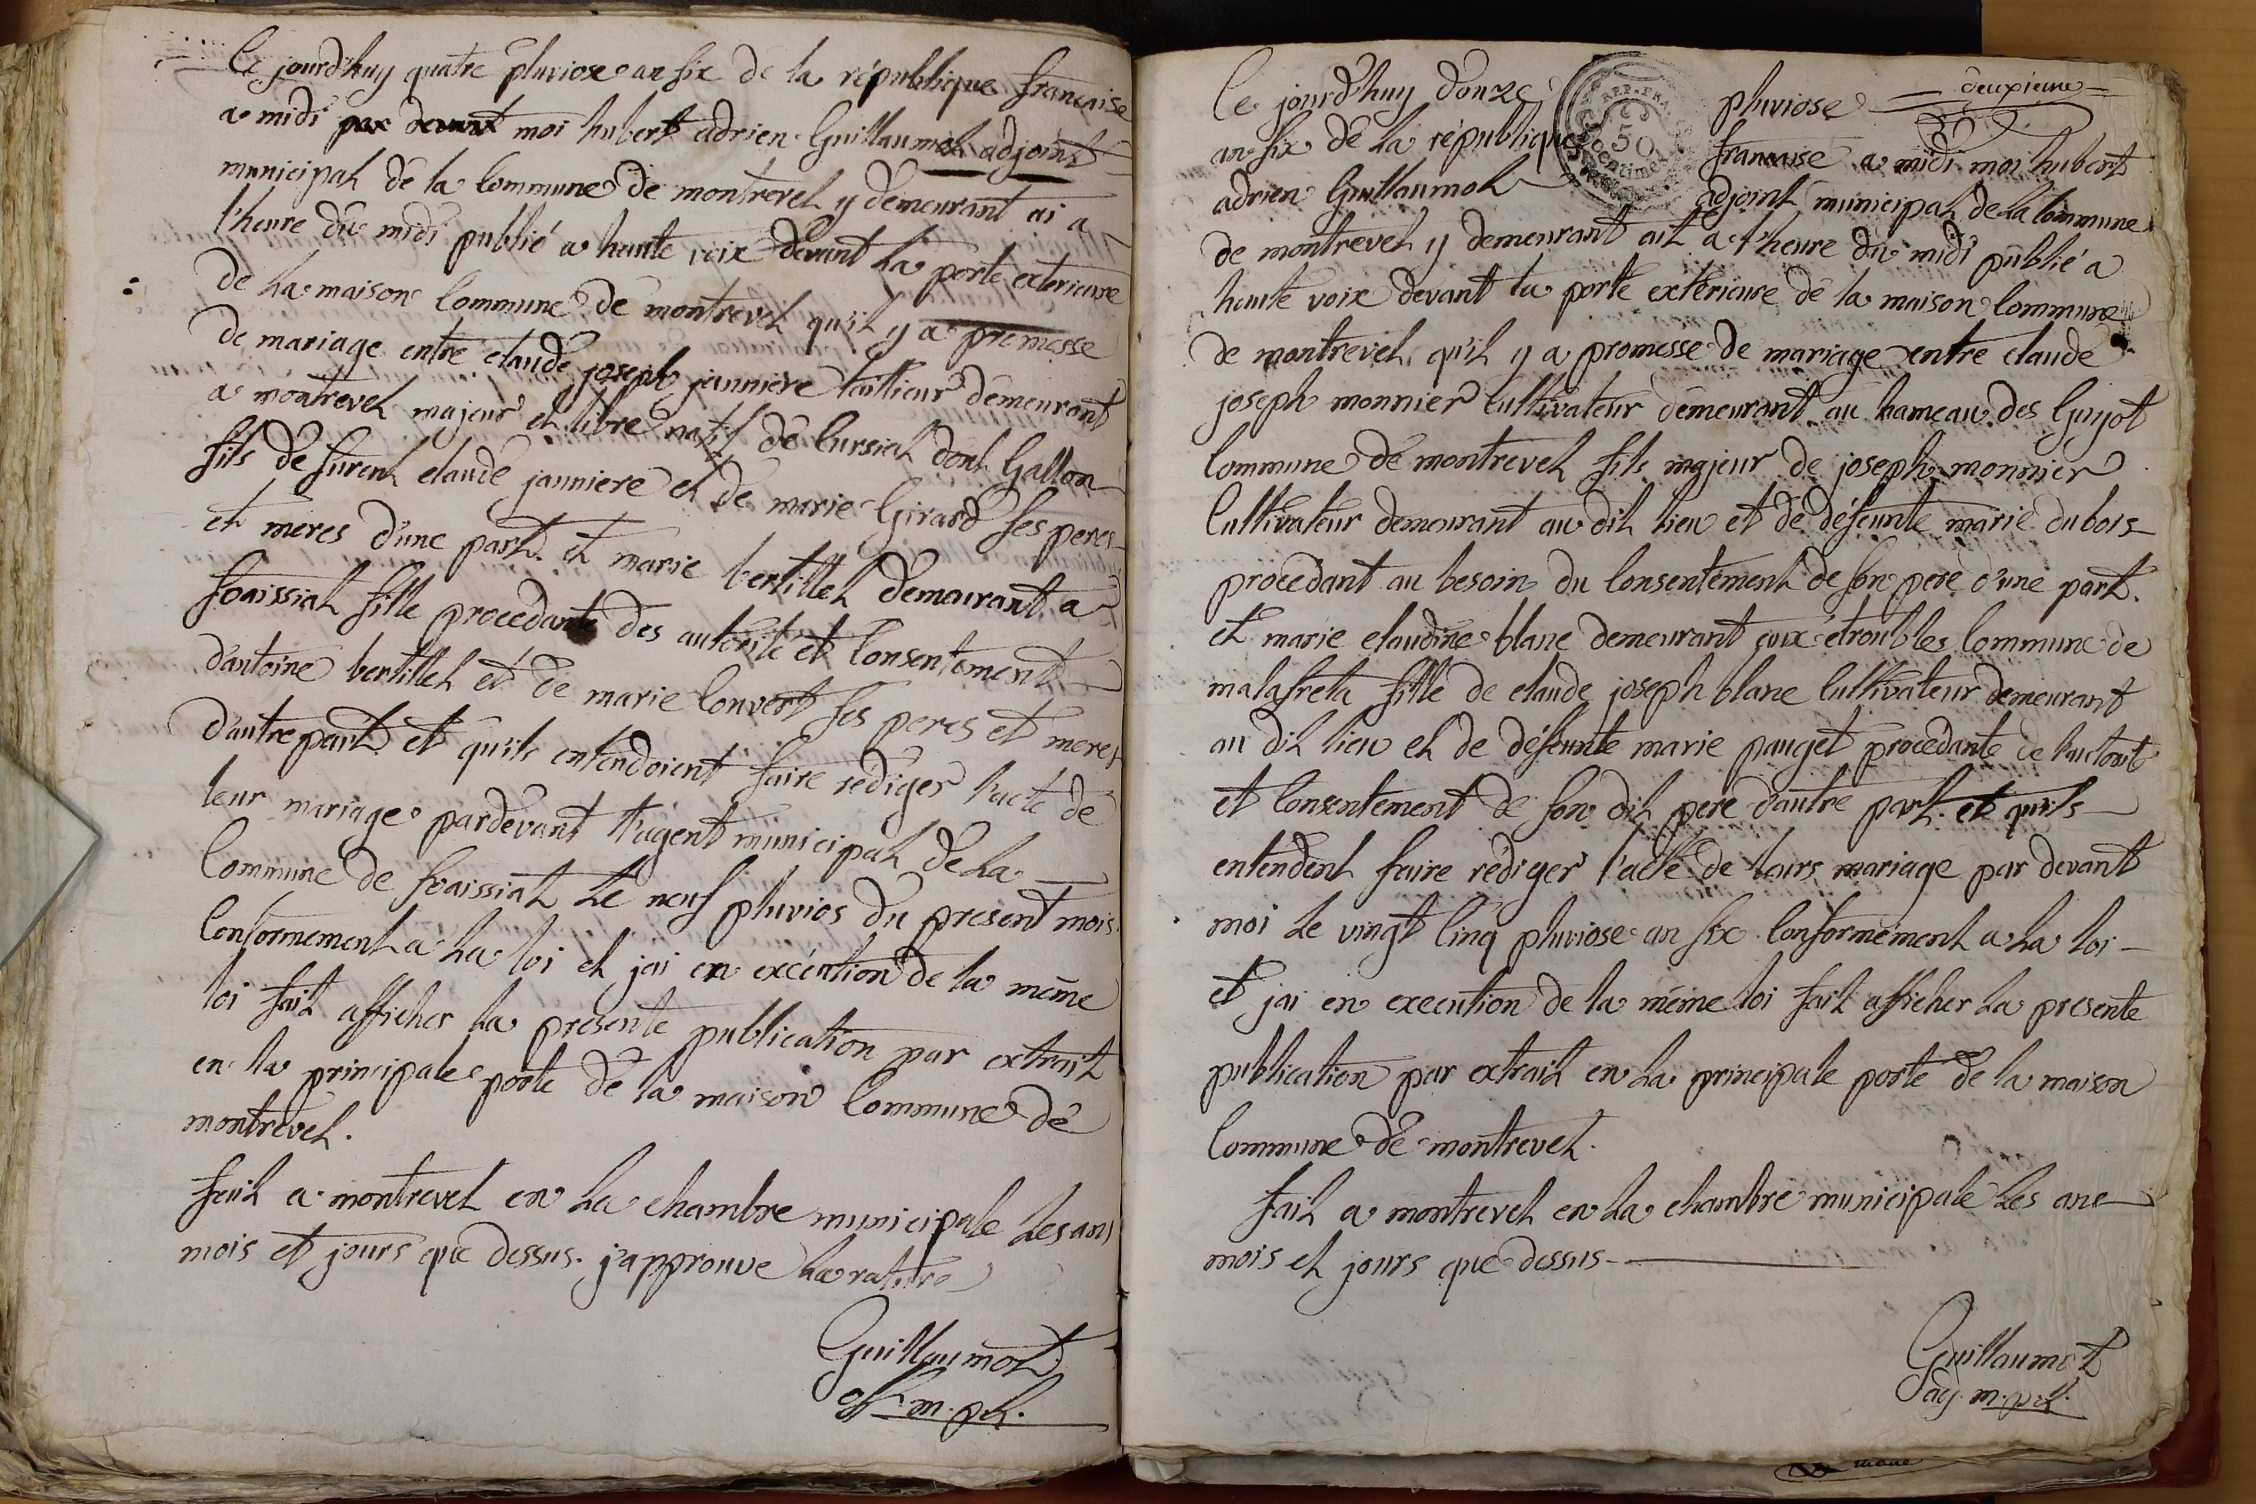 Ce jourd'huy quatre pluviose an six de la république francaise
a midi par devant moi hubert adrien Guillaumot adjoint
municipal de la Commune de montrevel y demeurant ai a
l'heure du midi publié a haute voix devant la porte exterieure
de la maison Commune de montrevel qu'il y a promesse
de mariage entre claude joseph janniere taillieur demeurant
a montrevel majeur et libre natif de Cursiat dont Gallon
fils de furent claude janniere et de marie Girard ses peres
et meres d'une part. et marie bertillet demeurant a
foaissiat fille procedante des autorité et Consentement
d'antoine bertillet et de marie Convert ses peres et meres
d'autre part et quils entendoient faire rediger l'acte de
leur mariage pardevant l'agent municipal de la
Commune de foaissiat le neuf pluvios du present mois
Conformement a la loi et jai en execution de la meme
loi fait afficher la presente publication par extrait
en la principale porte de la maison Commune de
montrevel.
fait a montrevel en la chambre municipale les ans
mois et jours que dessus. j'approuve la rature
Guillaumot
m. pl.
deuxieme
Ce jourd'huy douze pluviose
an six de la république francaise a midi moi hubert
adrien Guillaumot adjoint municipal de la Commune
APP. FRA.
50
centimes
de montrevel y demeurant ait a l'heure du midi publié a
haute voix devant la porte extérieure de la maison Commune
de montrevel qu'il y a promesse de mariage entre claude
joseph monnier Cultivateur demeurant au hameau des Guyot
Commune de montrevel fils majeur de joseph monnier
Cultivateur demeurant au dit lieu et de défeunte marie dubois
procedant au besoin du Consentement de son pere d'une part.
et marie claudine blanc demeurant aux étroubles Commune de
malafreta fille de claude joseph blanc Cultivateur demeurant
au dit lieu et de défeunte marie pauget procedante de l'autorité
et Consentement de son dit pere d'autre part. et quils
entendent faire rédiger l'acte de leurs mariage par devant
moi le vingt Cinq pluviose an six Conformément a la loi
et jai en execution de la même loi fait afficher la presente
publication par extrait en la principale porte de la maison
Commune de montrevel.
fait a montrevel en la chambre municipale les ans
mois et jours que dessus
Guillaumot
adj. m. pl.